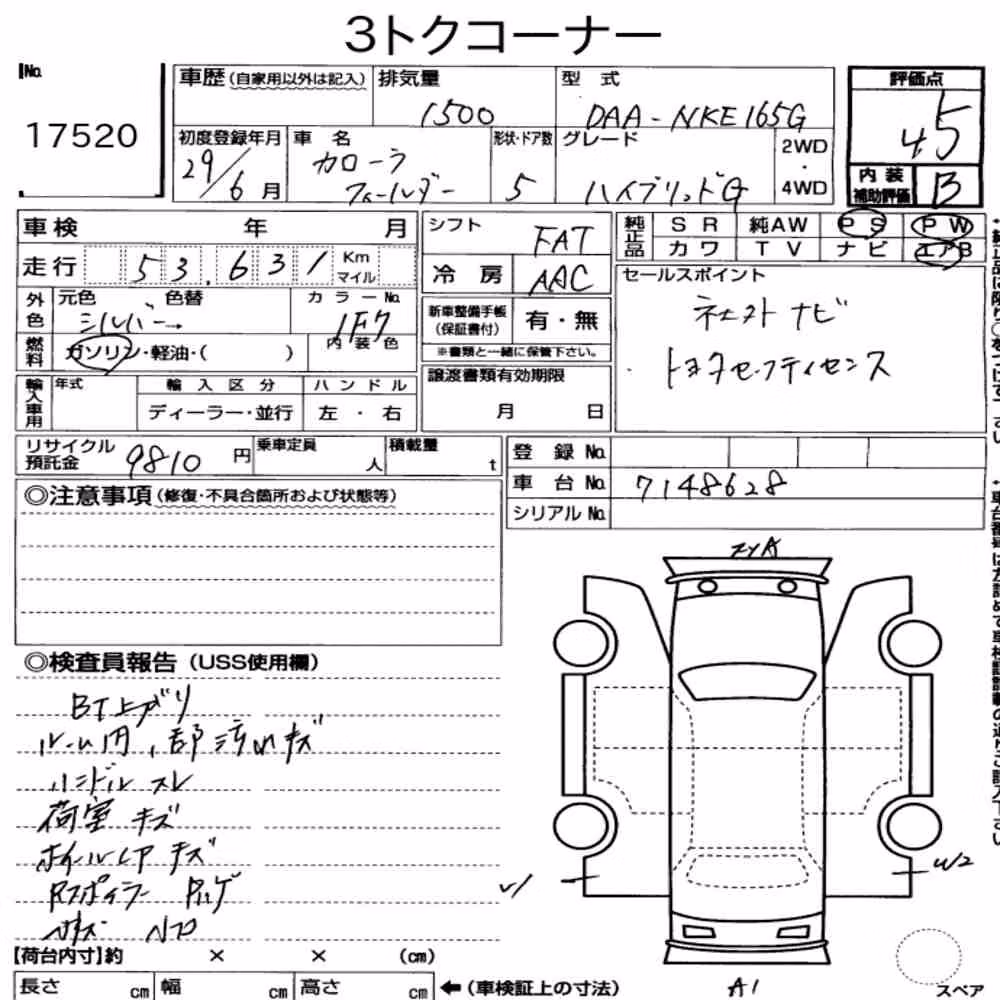 3トクコーナー
No.
17520
車歴(自家用以外は記入)
排気量
1500
型式
DAA-NKE165G
評価点
4.5
初度登録年月
29/6月
車名
カローラ
フィールダー
形状・ドア数
5
グレード
ハイブリッドG
2WD
・
4WD
内装
補助評価
B
車検 年 月
シフト
FAT
純正品
SR 純AW PS PW
カワ TV ナビ エアB
走行 53,631 Km
マイル
冷房 AAC
セールスポイント
ネクスト ナビ
トヨタセーフティセンス
外色
元色 色替
シルバー→
カラーNo.
1F7
新車整備手帳
(保証書付)
有・無
※書類と一緒に保管下さい。
燃料
ガソリン・軽油・( )
内装色
譲渡書類有効期限
月 日
輸入車用
年式
輸入区分
ハンドル
ディーラー・並行
左・右
リサイクル
預託金
9810円
乗車定員
人
積載量
t
登録No.
車台No.
7148628
シリアルNo.
◎注意事項(修復・不具合箇所および状態等)
◎検査員報告(USS使用欄)
BT上ガリ
ルーム内、部汚れキズ
ハンドル スレ
荷室 キズ
ホイールLア キズ
Rスポイラー
W2
A1
【荷台内寸】約 × × (cm)
長さ cm 幅 cm 高さ cm
←(車検証上の寸法)
スペア